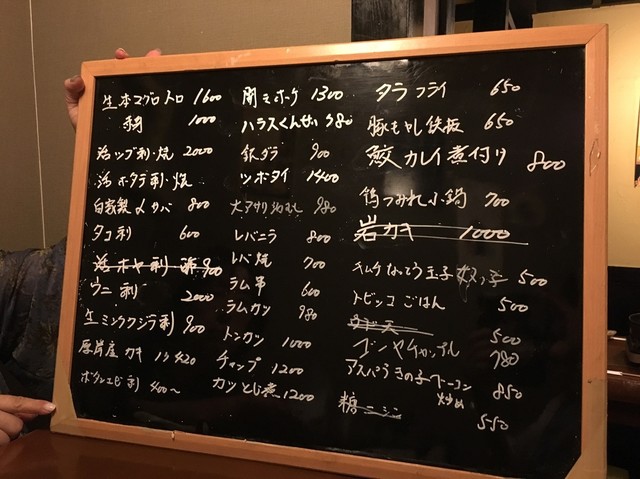 生本マグロトロ 1600
赤身 1000
活ツブ刺・焼 2000
活ホタテ刺・焼
自家製〆サバ 800
タコ刺 600
活ホヤ刺 900
ウニ刺 2000
生ミンククジラ刺 900
厚岸産カキ 1ケ 420
ボタンエビ刺 400〜
開きホッケ 1300
ハラスくんせい 980
銀ダラ 900
ツボダイ 1400
大アサリ 980
レバニラ 800
レバ焼 700
ラム串 600
ラムカツ 980
トンカツ 1000
チャップ 1200
カツとじ煮 1200
タラフライ 650
豚もやし鉄板 650
鮫カレイ煮付け 800
鶏つみれ小鍋 700
岩カキ 1000
キムチなっとう玉子 500
トビッコごはん 500
500
ゴーヤチャンプル 780
アスパラきの子ベーコン炒め 850
糖ニシン 550